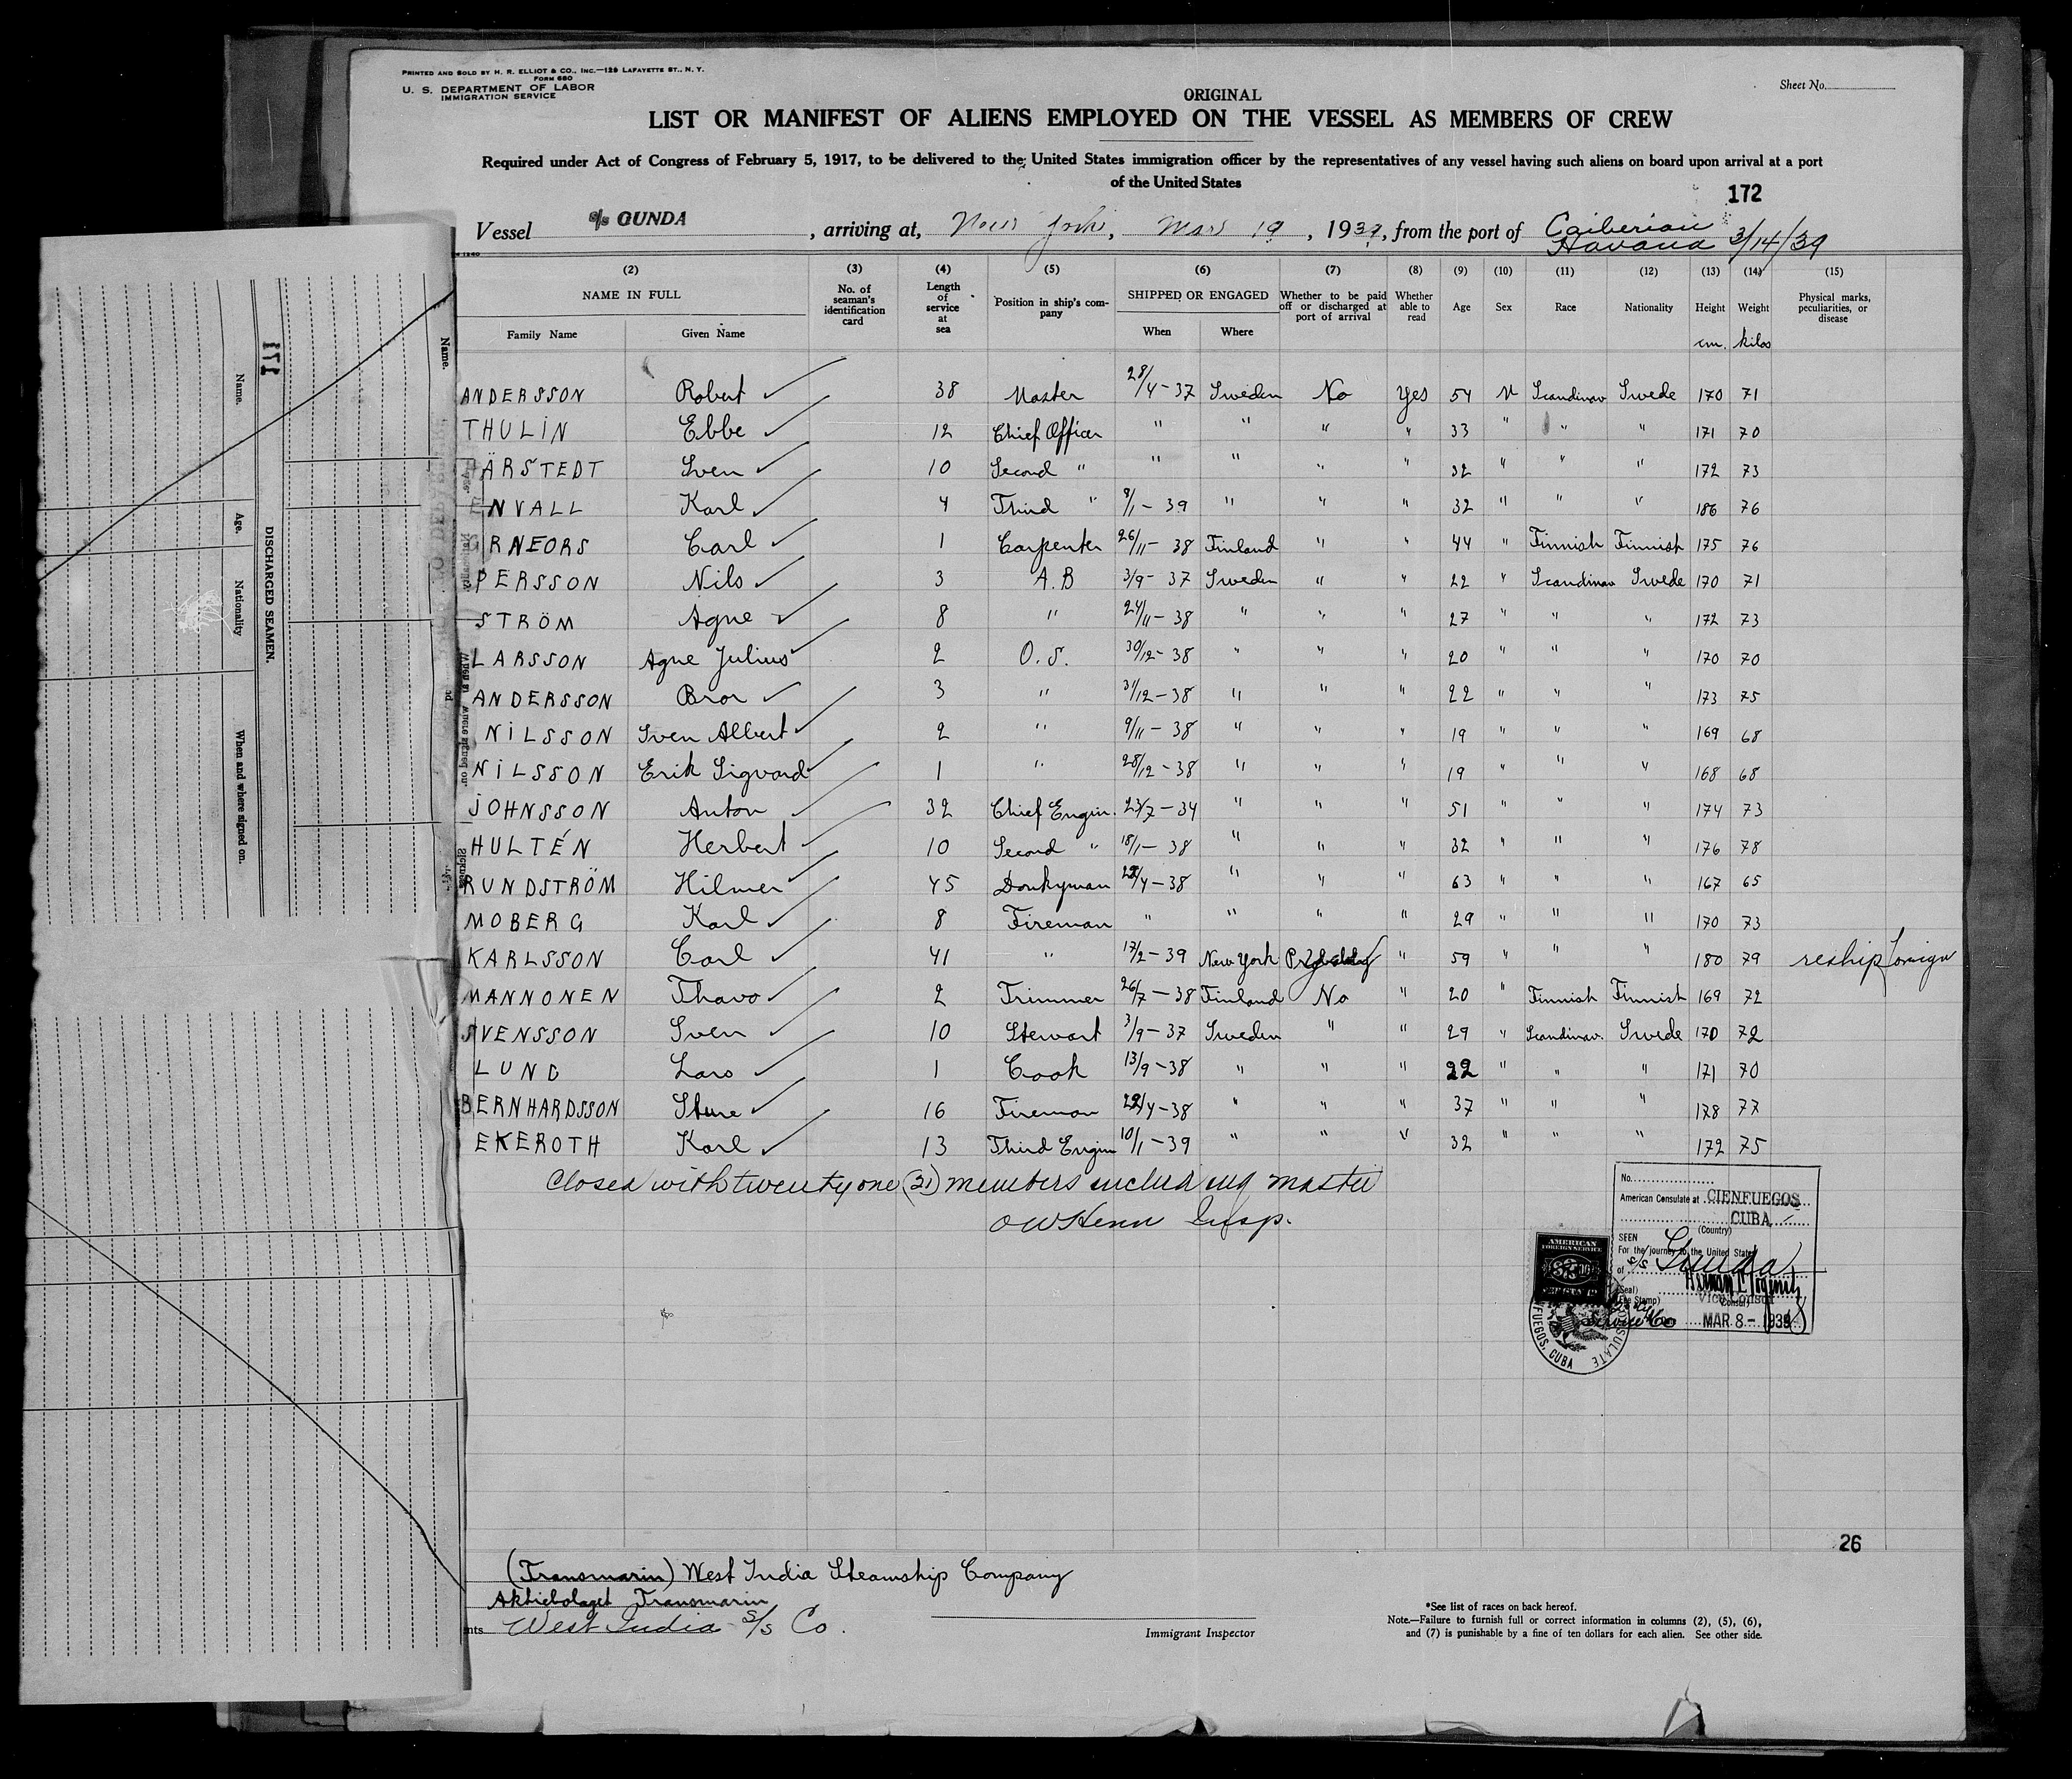 PRINTED AND SOLD BY H. R. ELLIOT & CO., INC.—129 LAFAYETTE ST., N. Y.
FORM 680
U. S. DEPARTMENT OF LABOR
IMMIGRATION SERVICE
Sheet No.
ORIGINAL
LIST OR MANIFEST OF ALIENS EMPLOYED ON THE VESSEL AS MEMBERS OF CREW
Required under Act of Congress of February 5, 1917, to be delivered to the United States immigration officer by the representatives of any vessel having such aliens on board upon arrival at a port
of the United States
172
Vessel s/s GUNDA, arriving at, New York, Mars 19, 1939, from the port of Caiberian
Havana 3/14/39
(2) (3) (4) (5) (6) (7) (8) (9) (10) (11) (12) (13) (14) (15)
NAME IN FULL
Family Name Given Name
No. of seaman's identification card
Length of service at sea
Position in ship's company
SHIPPED OR ENGAGED
When Where
Whether to be paid off or discharged at port of arrival
Whether able to read
Age Sex Race Nationality
Height cm.
Weight kilos
Physical marks, peculiarities, or disease
ANDERSSON Robert 38 Master 28/4-37 Sweden No Yes 54 M Scandinav Swede 170 71
THULIN Ebbe 12 Chief Officer " " " " 33 " " " 171 70
ÄRSTEDT Sven 10 Second " " " " " 32 " " " 172 73
NVALL Karl 4 Third " 9/1-39 " " " 32 " " " 186 76
RNEORS Carl 1 Carpenter 26/11-38 Finland " " 44 " Finnish Finnish 175 76
PERSSON Nils 3 A.B 3/9-37 Sweden " " 22 " Scandinav Swede 170 71
STRÖM Agne 8 " 24/11-38 " " " 27 " " " 172 73
LARSSON Agne Julius 2 O.S. 30/12-38 " " " 20 " " " 170 70
ANDERSSON Bror 3 " 31/12-38 " " " 22 " " " 173 75
NILSSON Sven Albert 2 " 9/11-38 " " " 19 " " " 169 68
NILSSON Erik Sigvard 1 " 28/12-38 " " " 19 " " " 168 68
JOHNSSON Anton 32 Chief Engin. 23/7-34 " " " 51 " " " 174 73
HULTÉN Herbert 10 Second " 18/1-38 " " " 32 " " " 176 78
RUNDSTRÖM Hilmer 45 Donkyman 28/4-38 " " " 63 " " " 167 65
MOBERG Karl 8 Fireman " " " " 29 " " " 170 73
KARLSSON Carl 41 " 17/2-39 New York " 59 " " " 180 79 reship foreign
MANNONEN Thavo 2 Trimmer 26/7-38 Finland No " 20 " Finnish Finnish 169 72
SVENSSON Sven 10 Stewart 3/9-37 Sweden " " 29 " Scandinav. Swede 170 72
LUND Lars 1 Cook 13/9-38 " " " 22 " " " 171 70
BERNHARDSSON Sture 16 Fireman 28/4-38 " " " 37 " " " 178 77
EKEROTH Karl 13 Third Engin 10/1-39 " " " 32 " " " 172 75
Closed with twenty one (21) members including master
OW Henn Insp.
No.
American Consulate at CIENFUEGOS
CUBA
(Country)
SEEN
For the journey to the United States
of s/s Gunda
(Seal)
(Fee Stamp)
Vice Consul
MAR 8 - 1939
AMERICAN
FOREIGN SERVICE
26
(Transmarin) West India Steamship Company
Aktiebolaget Transmarin
nts West India S/S Co.
Immigrant Inspector
*See list of races on back hereof.
Note.—Failure to furnish full or correct information in columns (2), (5), (6),
and (7) is punishable by a fine of ten dollars for each alien. See other side.
171
DISCHARGED SEAMEN.
Name.
Age.
Nationality
When and where signed on.
Name.